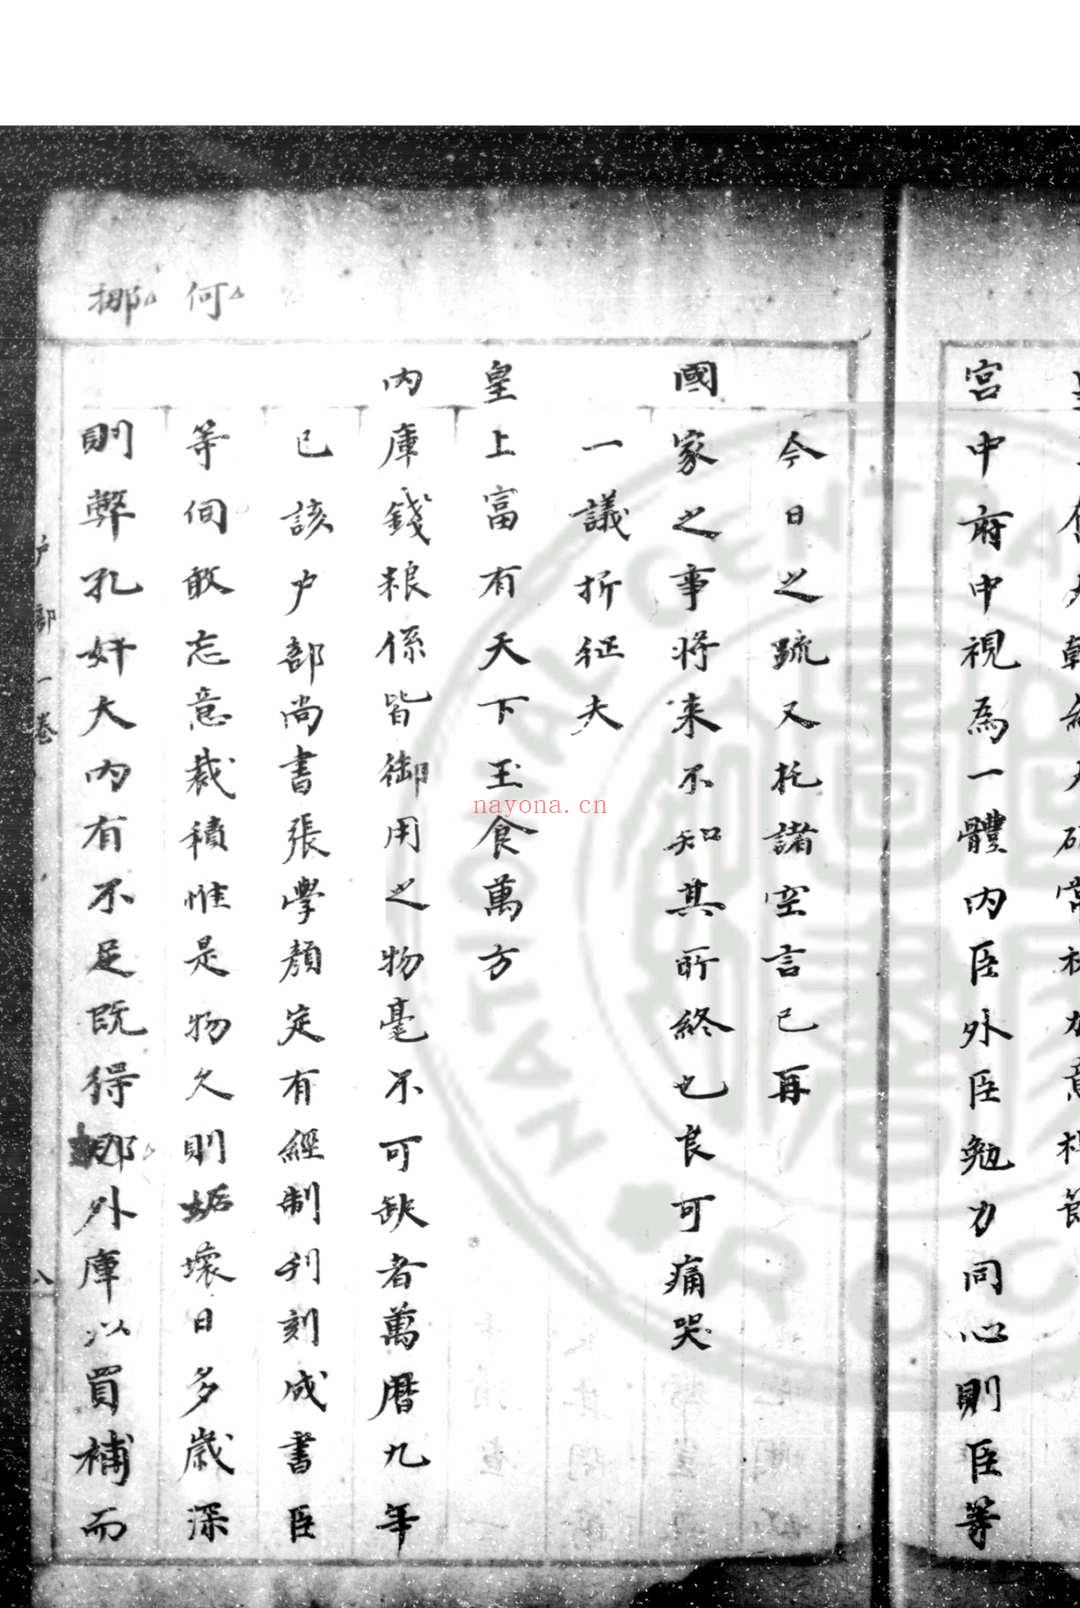 宮中府中視為一體內臣外臣勉力同心則臣等
今日之疏又托諸空言已再
國家之事將来不知其所終也良可痛哭
一議折征夫
皇上富有天下玉食萬方
內庫錢粮係皆御用之物毫不可缺者萬曆九年
已該户部尚書張學顏定有經制刊刻成書臣
等伺敢忘意裁積惟是物久則蛎壞日多歲深
則弊孔奸大內有不足既得郍外庫以買補而
何
挪
户部一卷
八
nayona.cn
NATIONAL CENTRA